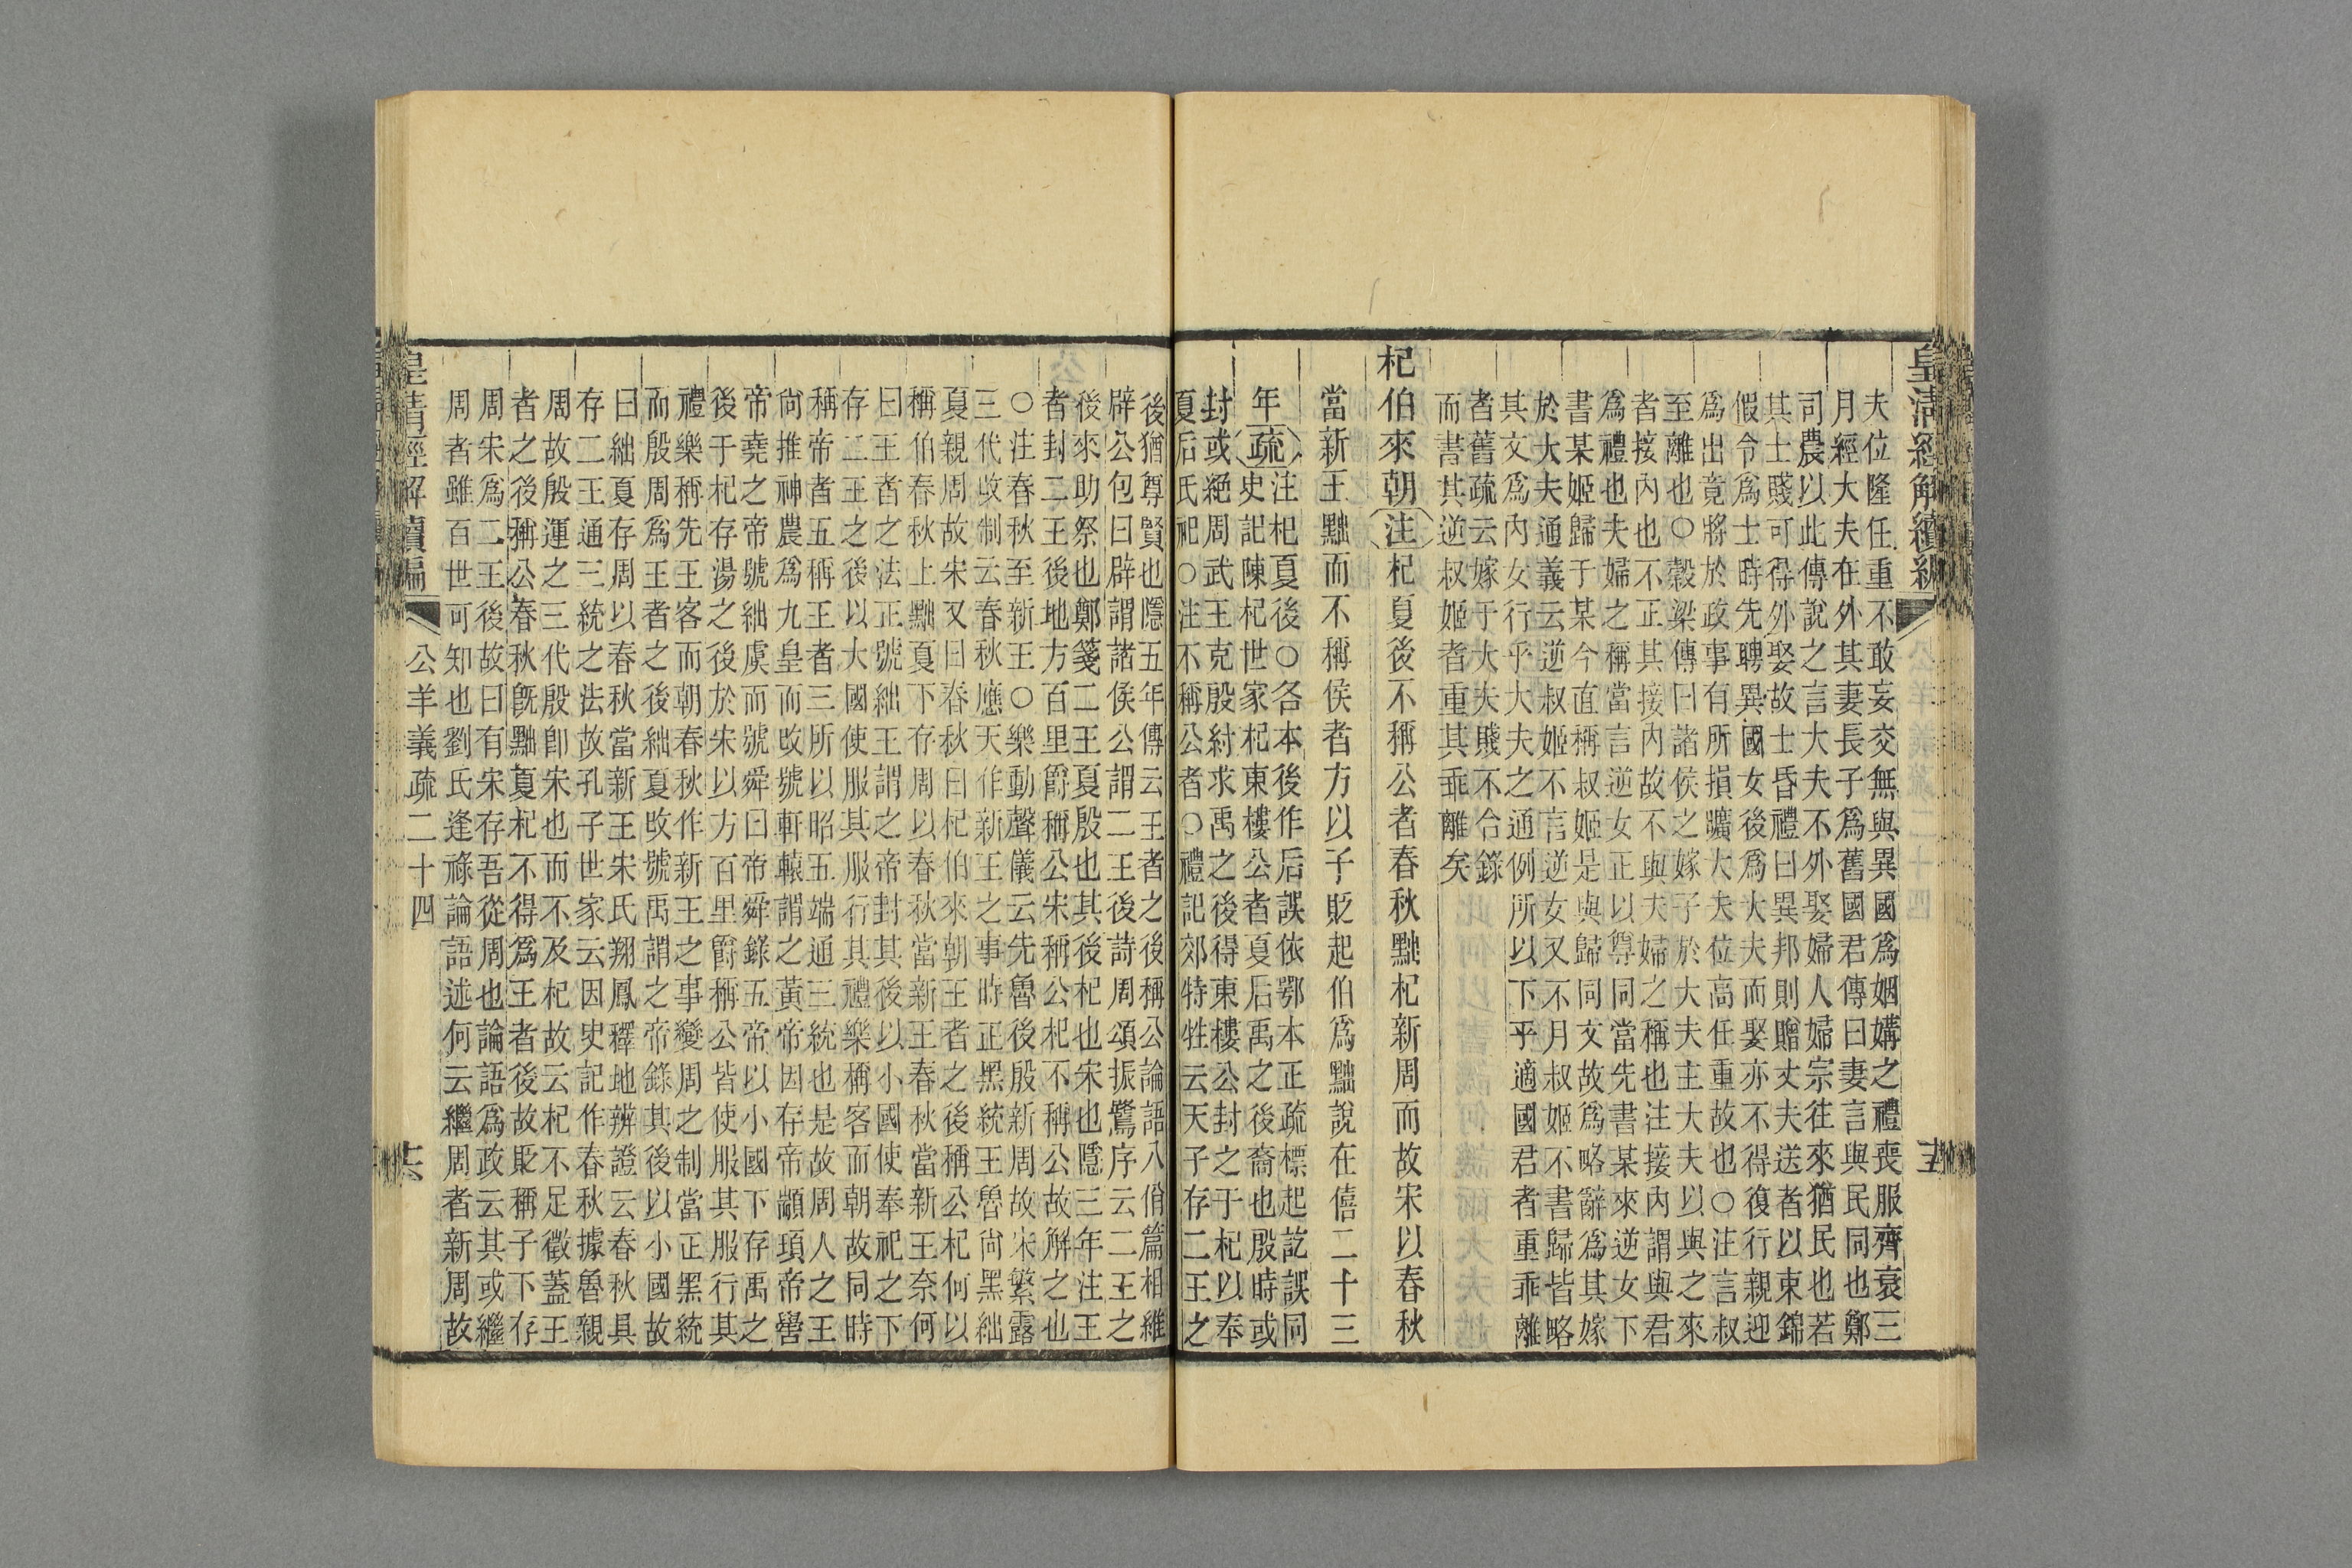 皇清經解續編
夫位隆任重不敢妄交無與異國爲姻媾之禮喪服齊衰三
月經大夫在外其妻長子爲舊國君傳曰妻言與民同也鄭
司農以此傳說之言大夫不外娶婦人婦宗往來猶民也若
其士賤可得外娶故士昏禮曰異邦則贈丈夫送者以束錦
假令爲士時先聘異國女後爲大夫而娶亦不得復行親迎
爲出竟將於政事有所損曠大夫位高任重故也○注言叔
至離也○穀梁傳曰諸侯之嫁子於大夫主大夫以與之來
者接內也不正其接內故不與夫婦之稱也注接內謂與君
爲禮也夫婦之稱當言逆女正以尊同當先書某來逆女下
書某姬歸于某今直稱叔姬是與歸同文故爲略辭爲其嫁
於大夫通義云逆叔姬不言逆女又不月叔姬不書歸皆略
其文爲內女行乎大夫之通例所以下乎適國君者重乖離
者舊疏云嫁于大夫賤不合錄
而書其逆叔姬者重其乖離矣
杞伯來朝注杞夏後不稱公者春秋黜杞新周而故宋以春秋
當新王黜而不稱侯者方以子貶起伯爲黜說在僖二十三
年疏注杞夏後○各本後作后誤依鄂本正疏標起訖誤同
史記陳杞世家杞東樓公者夏后禹之後裔也殷時或
封或絕周武王克殷紂求禹之後得東樓公封之于杞以奉
夏后氏祀○注不稱公者○禮記郊特牲云天子存二王之
後猶尊賢也隱五年傳云王者之後稱公論語八佾篇相維
辟公包曰辟謂諸侯公謂二王後詩周頌振鷺序云二王之
後來助祭也鄭箋二王夏殷也其後杞也宋也隱三年注王
者封二王後地方百里爵稱公宋稱公杞不稱公故解之也
○注春秋至新王○樂動聲儀云先魯後殷新周故宋繁露
三代改制云春秋應天作新王之事時正黑統王魯尚黑絀
夏親周故宋又曰春秋曰杞伯來朝王者之後稱公杞何以
稱伯春秋上黜夏下存周以春秋當新王春秋當新王奈何
曰王者之法正號絀王謂之帝封其後以小國使奉祀之下
存二王之後以大國使服其服行其禮樂稱客而朝故同時
稱帝者五稱王者三所以昭五端通三統也是故周人之王
尚推神農爲九皇而改號軒轅謂之黃帝因存帝顓頊帝嚳
帝堯之帝號絀虞而號舜曰帝舜錄五帝以小國下存禹之
後于杞存湯之後於宋以方百里爵稱公皆使服其服行其
禮樂稱先王客而朝春秋作新王之事變周之制當正黑統
而殷周爲王者之後絀夏改號禹謂之帝錄其後以小國故
曰絀夏存周以春秋當新王宋氏翔鳳釋地辨證云春秋具
存二王通三統之法故孔子世家云因史記作春秋據魯親
周故殷運之三代殷卽宋也而不及杞故云杞不足徵蓋王
者之後稱公春秋旣黜夏杞不得爲王者後故貶稱子下存
周宋爲二王後故曰有宋存吾從周也論語爲政云其或繼
周者雖百世可知也劉氏逢祿論語述何云繼周者新周故
皇清經解續編
公羊義疏二十四